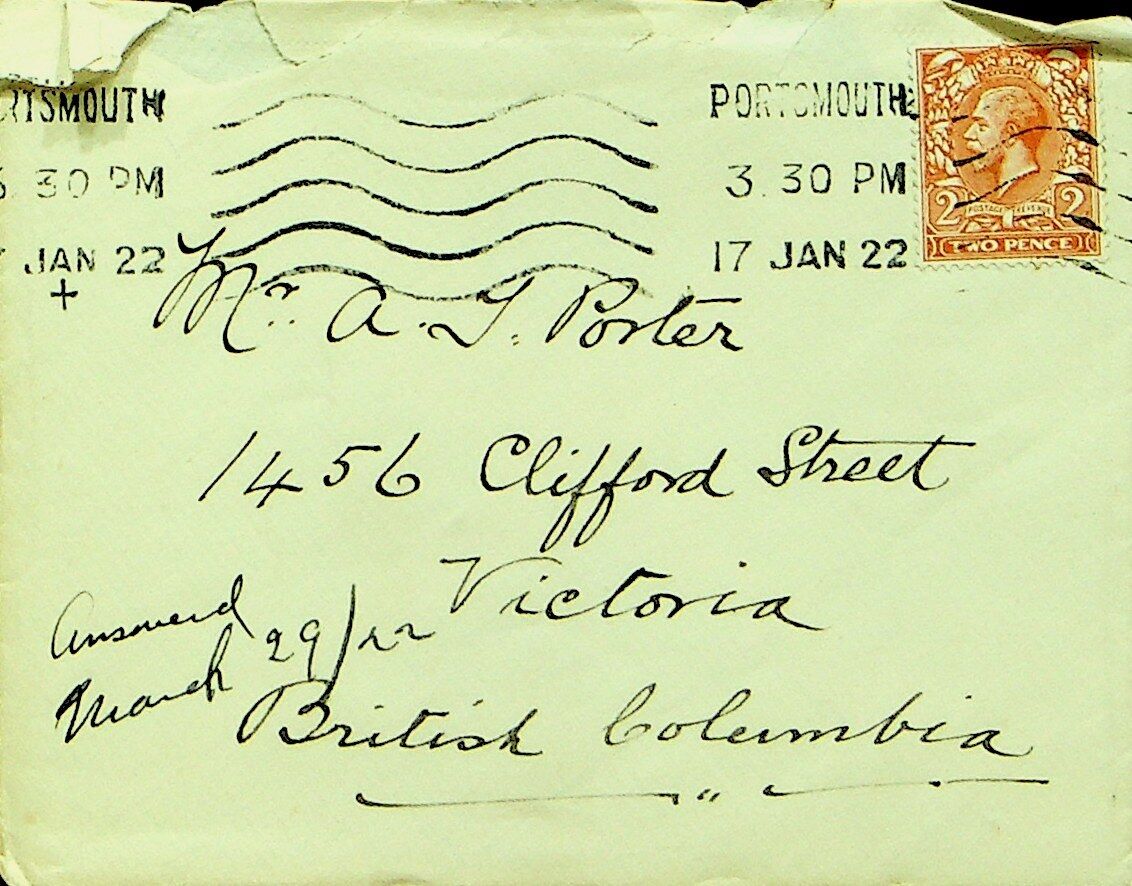 RTSMOUTH PORTSMOUTH
30 PM 3.30 PM
JAN 22 17 JAN 22
+
2 2
POSTAGE REVENUE
TWO PENCE
Mr. A. T. Porter
1456 Clifford Street
Victoria
Answerd
March 29/22
British Columbia